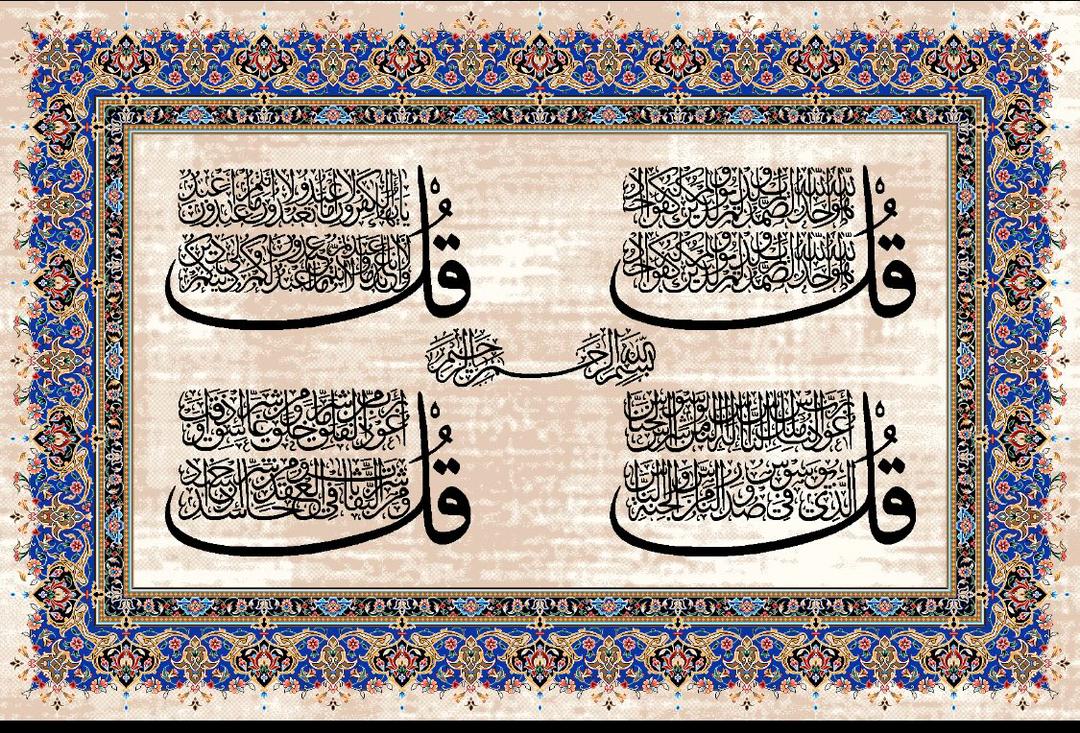 قل هو الله أحد الله الصمد لم يلد ولم يولد ولم يكن له كفوا أحد
قل يا أيها الكافرون لا أعبد ما تعبدون ولا أنتم عابدون ما أعبد
ولا أنا عابد ما عبدتم ولا أنتم عابدون ما أعبد لكم دينكم ولي دين
بسم الله الرحمن الرحيم
قل أعوذ برب الناس ملك الناس إله الناس من شر الوسواس الخناس
الذي يوسوس في صدور الناس من الجنة والناس
قل أعوذ برب الفلق من شر ما خلق ومن شر غاسق إذا وقب
ومن شر النفاثات في العقد ومن شر حاسد إذا حسد